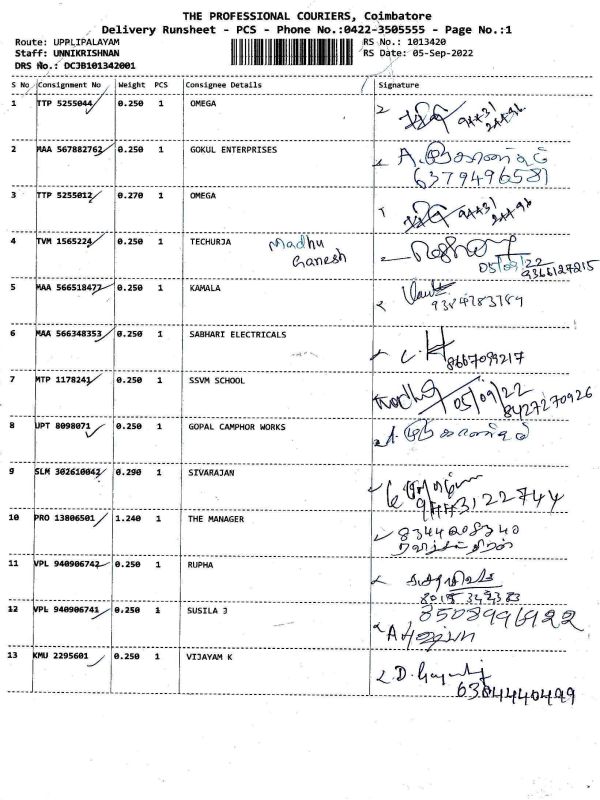 THE PROFESSIONAL COURIERS, Coimbatore
Delivery Runsheet - PCS - Phone No.:0422-3505555 - Page No.:1
Route: UPPLIPALAYAM RS No.: 1013420
Staff: UNNIKRISHNAN RS Date: 05-Sep-2022
DRS No.: DCJB101342001
S No Consignment No Weight PCS Consignee Details Signature
1 TTP 5255044 0.250 1 OMEGA
2 MAA 567882762 0.250 1 GOKUL ENTERPRISES
6379496581
3 TTP 5255012 0.270 1 OMEGA
4 TVM 1565224 0.250 1 TECHURJA Madhu
Ganesh
05/09/22
9366127215
5 MAA 566518477 0.250 1 KAMALA
6 MAA 566348353 0.250 1 SABHARI ELECTRICALS
8667099217
7 MTP 1178241 0.250 1 SSVM SCHOOL
05/09/22
8427270926
8 UPT 8098071 0.250 1 GOPAL CAMPHOR WORKS
9 SLM 302610042 0.290 1 SIVARAJAN
9443122744
10 PRO 13806501 1.240 1 THE MANAGER
8344208340
11 VPL 940906742 0.250 1 RUPHA
12 VPL 940906741 0.250 1 SUSILA J
8508996922
13 KMU 2295601 0.250 1 VIJAYAM K